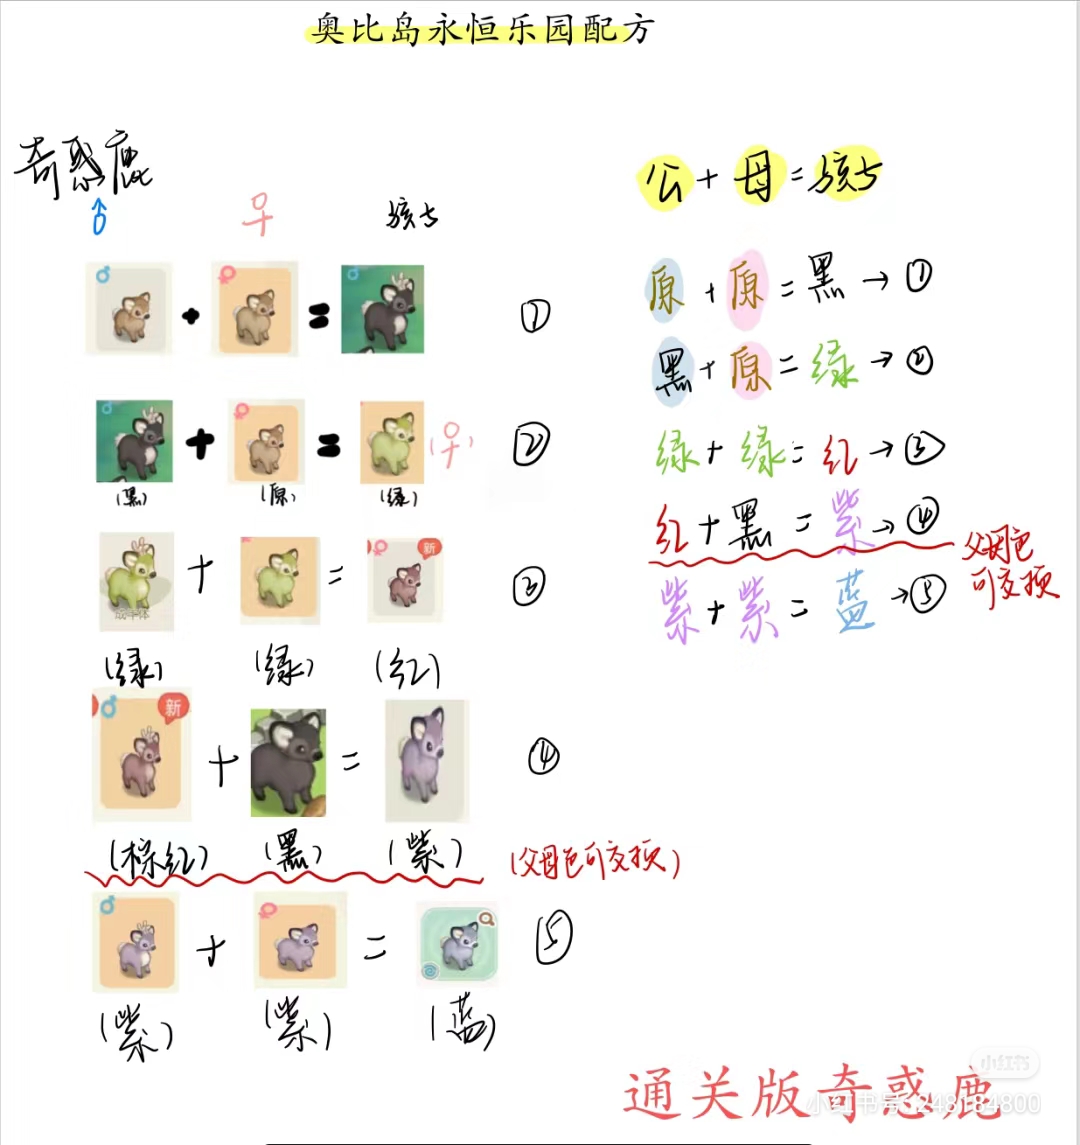 奥比岛永恒乐园配方
奇惑鹿
♂ ♀ 孩子
+ = ①
+ = (♀) ②
(黑) (原) (绿)
成年体
+ = 新 ③
(绿) (绿) (红)
新
+ = ④
(棕红) (黑) (紫) (父母色可交换)
+ = ⑤
(紫) (紫) (蓝)
公+母=孩子
原+原=黑→①
黑+原=绿→②
绿+绿=红→③
红+黑=紫→④
父母色
可交换
紫+紫=蓝→⑤
小红书
通关版奇惑鹿
小红书号: 248184800